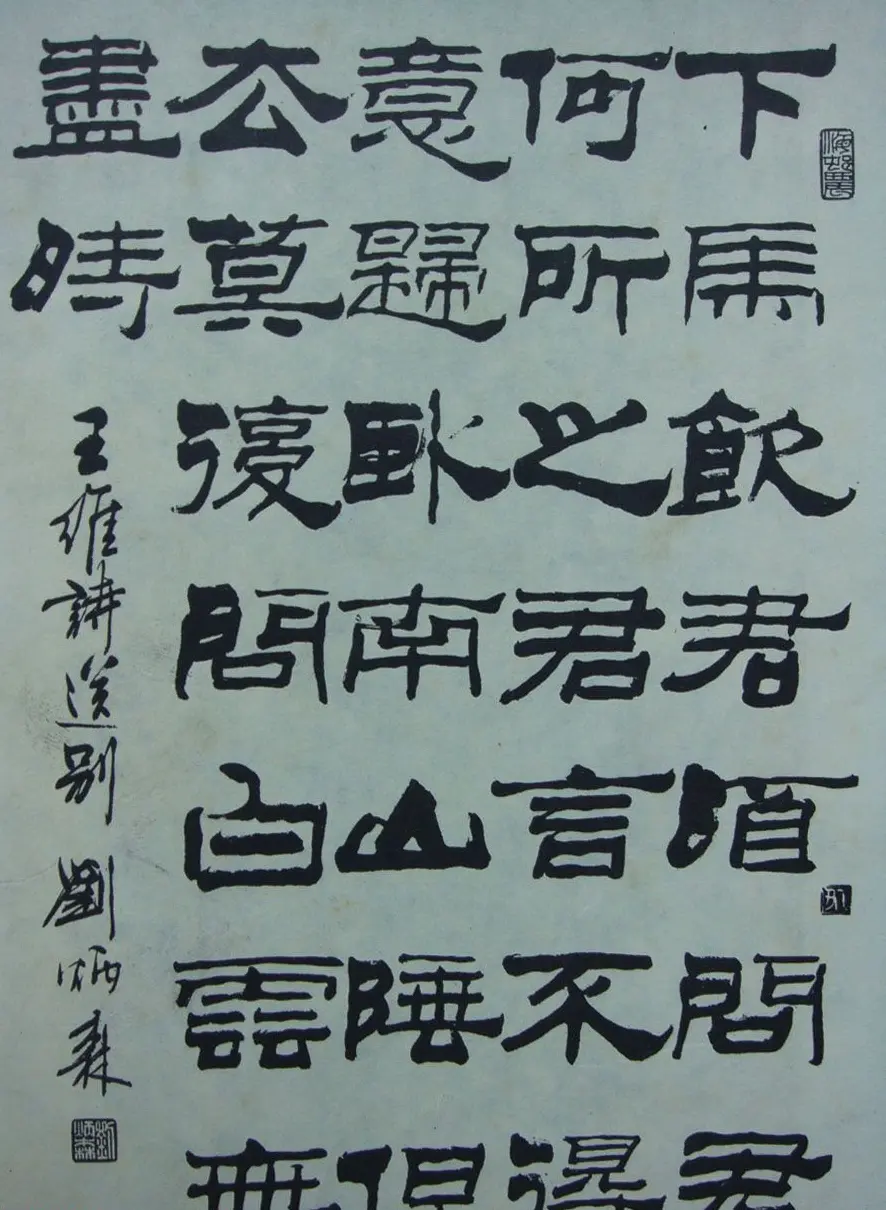 下馬飲君酒問君
何所之君言不得
意歸臥南山陲但
去莫復問白雲無
盡時
王維詩送別 劉炳森
海邨農
劉炳森